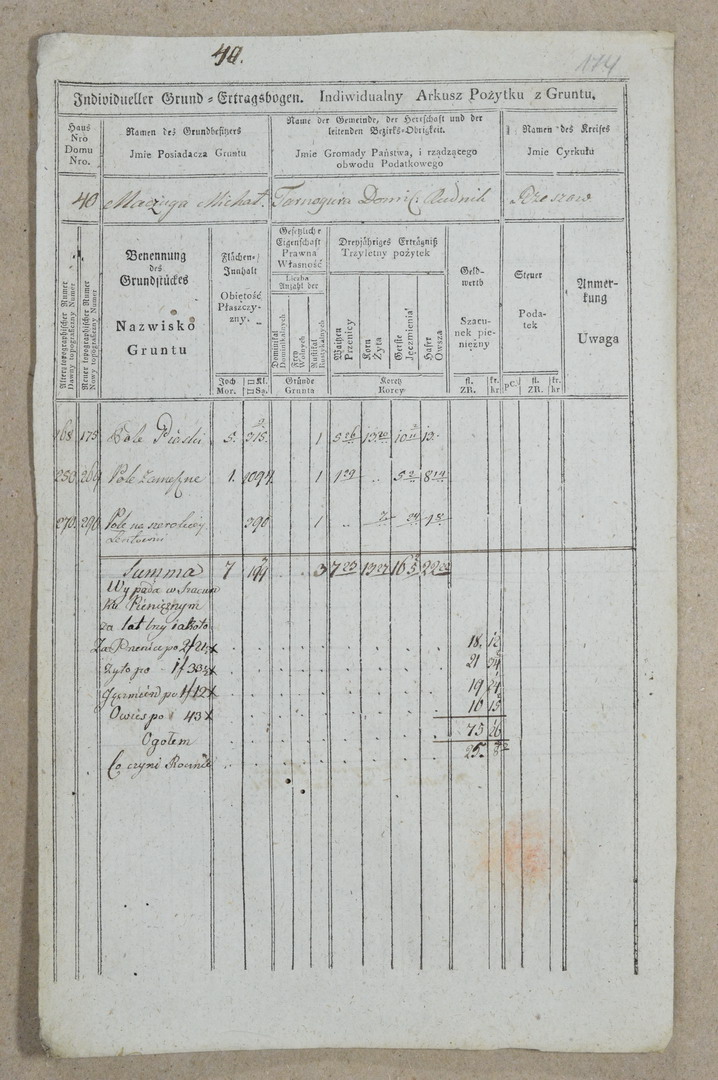 40.
174
Individueller Grund = Ertragsbogen. Indiwidualny Arkusz Pożytku z Gruntu.
Haus Nrò Domu Nro.
Namen des Grundbesitzers
Jmie Posiadacza Gruntu
Name der Gemeinde, der Herrschaft und der leitenden Bezirks-Obrigkeit.
Jmie Gromady Państwa, i rządzącego obwodu Podatkowego
Namen des Kreises
Jmie Cyrkułu
40 Maczuga Michał. Tarnogura Domin: Rudnik Rzeszow
Alterer topographischer Numer
Dawny topograficzny Numer
Neuer topographischer Numer
Nowy topograficzny Numer
Benennung des Grundstückes
Nazwisko Gruntu
Flächen-Innhalt
Obiętość Płaszczyzny.
Joch. Mor.
□Kl. □Są.
Gesetzliche Eigenschaft
Prawna Własność
Liczba
Anzahl der
Dominikal Dominikalnych
Frey Wolnych
Rustikal Rustykalnych
Gründe
Grunta
Dreyjähriges Erträgniß
Trzyletny pożytek
Waitzen Pszenicy
Korn Żyta
Gerste Jęczmienia
Hafer Owsa
Koretz
Korcy
Geld-werth
Szacunek pieniężny
fl. ZR.
kr. kr
Steuer
Podatek
pC.
fl. ZR.
kr. kr
Anmerkung
Uwaga
168 175 Pole Piaski 5. 315. 1
250 269 Pole Zameszne 1. 1094. 1 1 29 ,,
270. 290 Pole na szerokiey 390 1 ,,
Summa 7 3 7 23 13 27 22 22
Wypada w Szacun
ku Pienieznym
za lat trzy iakoto
Za Pszenice po 2f 21
Zyto po 1f 33
21
Jęczmień po 1f 12x 19 24
Owies po 43x 16 15
Ogołem 75 26
Co czyni Rocznie 25. 8